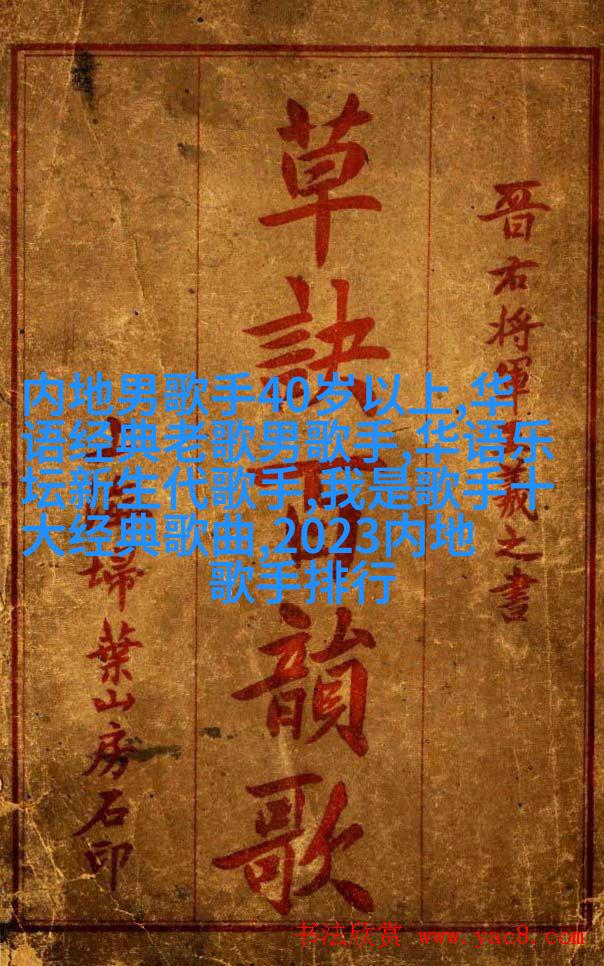 晉右将軍羲之書
草訣百韻歌
掃葉山房石印
内地男歌手40岁以上,华
语经典老歌男歌手,华语乐
坛新生代歌手,我是歌手十
大经典歌曲,2023内地
歌手排行
书法欣赏 www.yac8.com